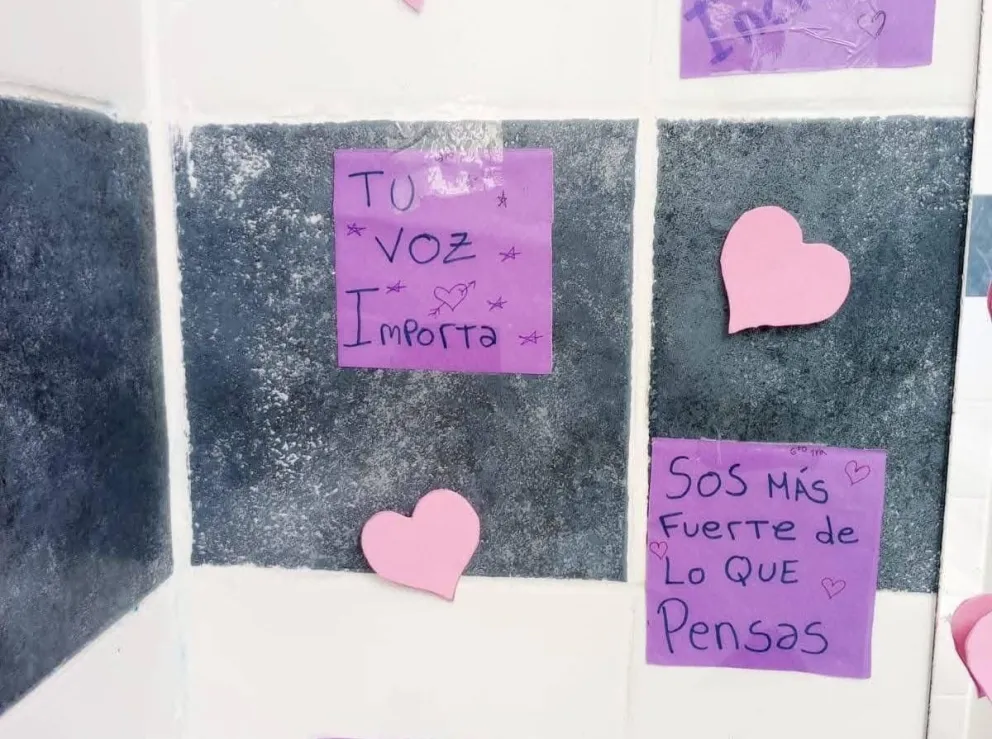 TU
VOZ
Importa
SOS MÁS
Fuerte de
Lo QUE
Pensas